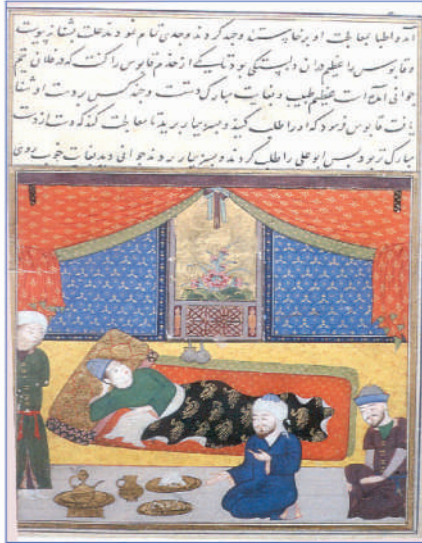 آمد و اطبا بمعالجت او برخاستند و جهد کردند و جدی تمام نمودند علت بشفا نپیوست
و قابوس را عظیم در آن دلبستگی بود تا یکی از خدم قابوس را گفت که در فلان تیم
جوانی آمده است عظیم طبیب و بغایت مبارک دست و چند کس بر دست او شفا
یافت قابوس فرمود که او را طلب کنید و بسر بیمار برید تا معالجت کند که دست از دست
مبارک‌تر بود پس ابو علی را طلب کردند و بسر بیمار بردند جوانی دید بغایت خوب روی